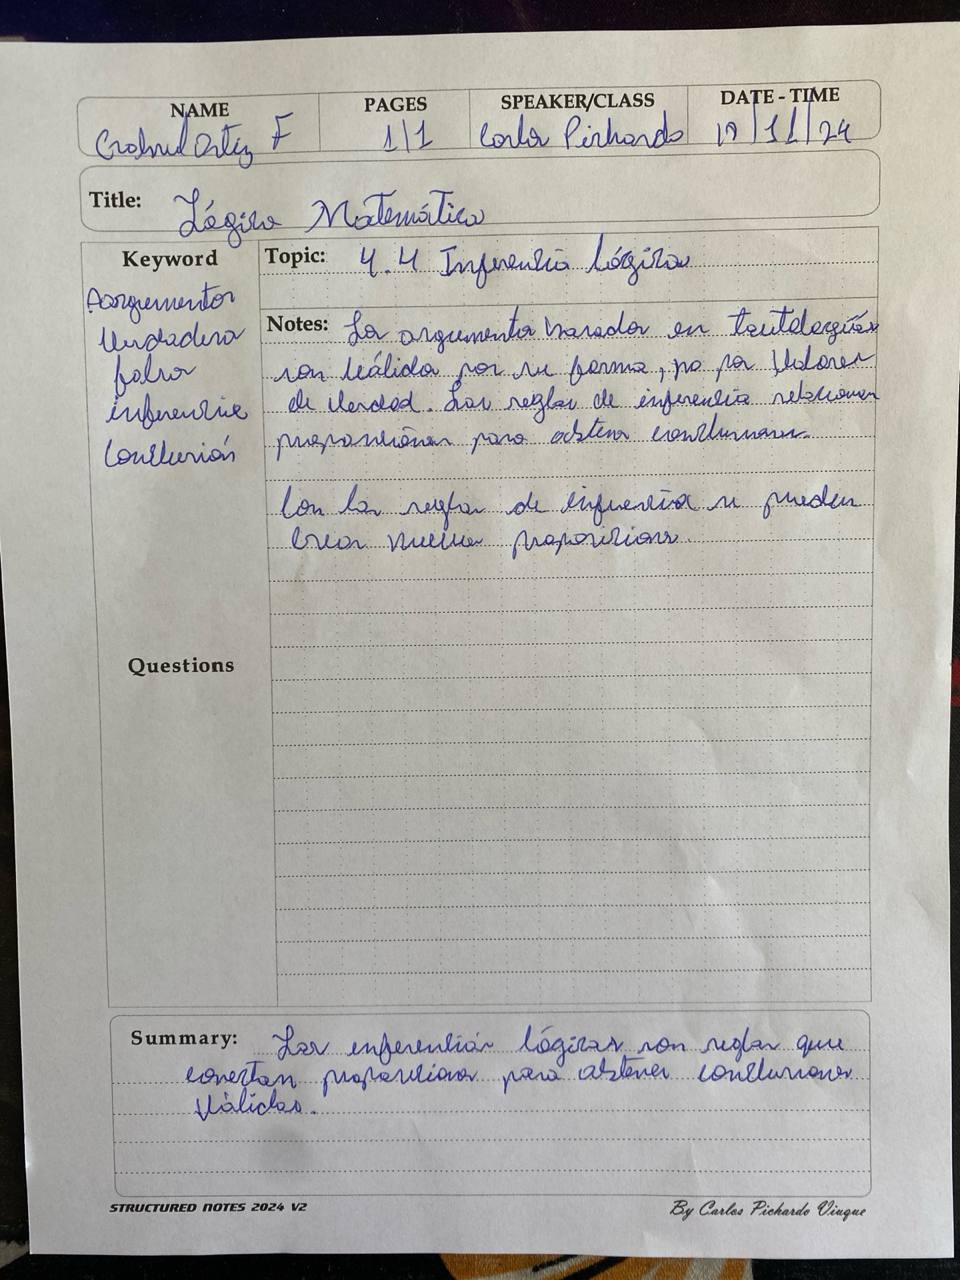 NAME PAGES SPEAKER/CLASS DATE - TIME
Ortiz F 1/1 Carlos Pichardo 19/11/24
Title: Lógica Matemática
Keyword
Topic: 4.4 Inferencia Lógica
Aargumentos
Verdadero
falso
inferencia
Conclusión
Notes: Los argumentos basados en tautologías
son válidos por su forma, no por valores
de verdad. Las reglas de inferencia relacionan
proposiciones para obtener conclusiones.
Con las reglas de inferencia se pueden
crear nuevas proposiciones.
Questions
Summary: Las inferencias lógicas son reglas que
conectan proposiciones para obtener conclusiones
válidas.
STRUCTURED NOTES 2024 V2 By Carlos Pichardo Viuque